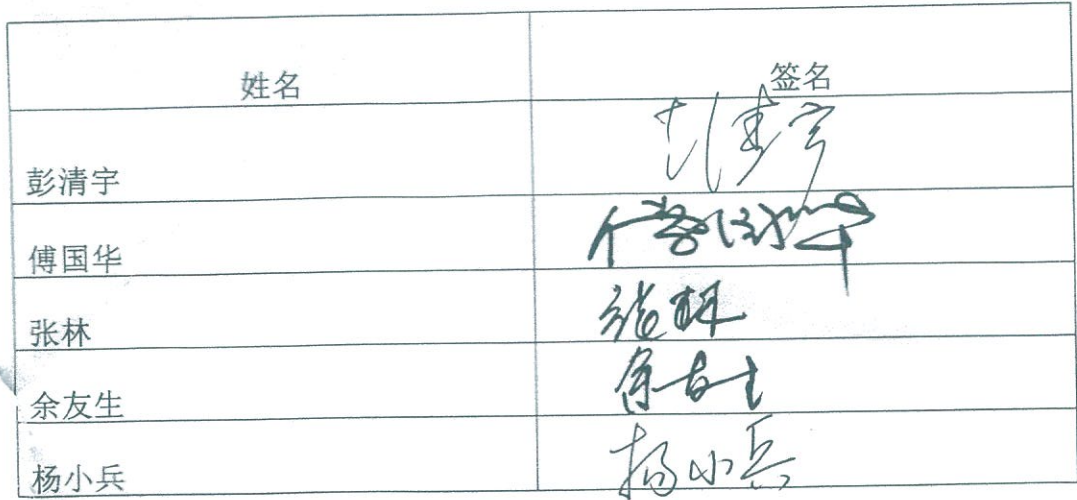 姓名 签名
彭清宇 彭清宇
傅国华 傅国华
张林 张林
余友生 余友生
杨小兵 杨小兵